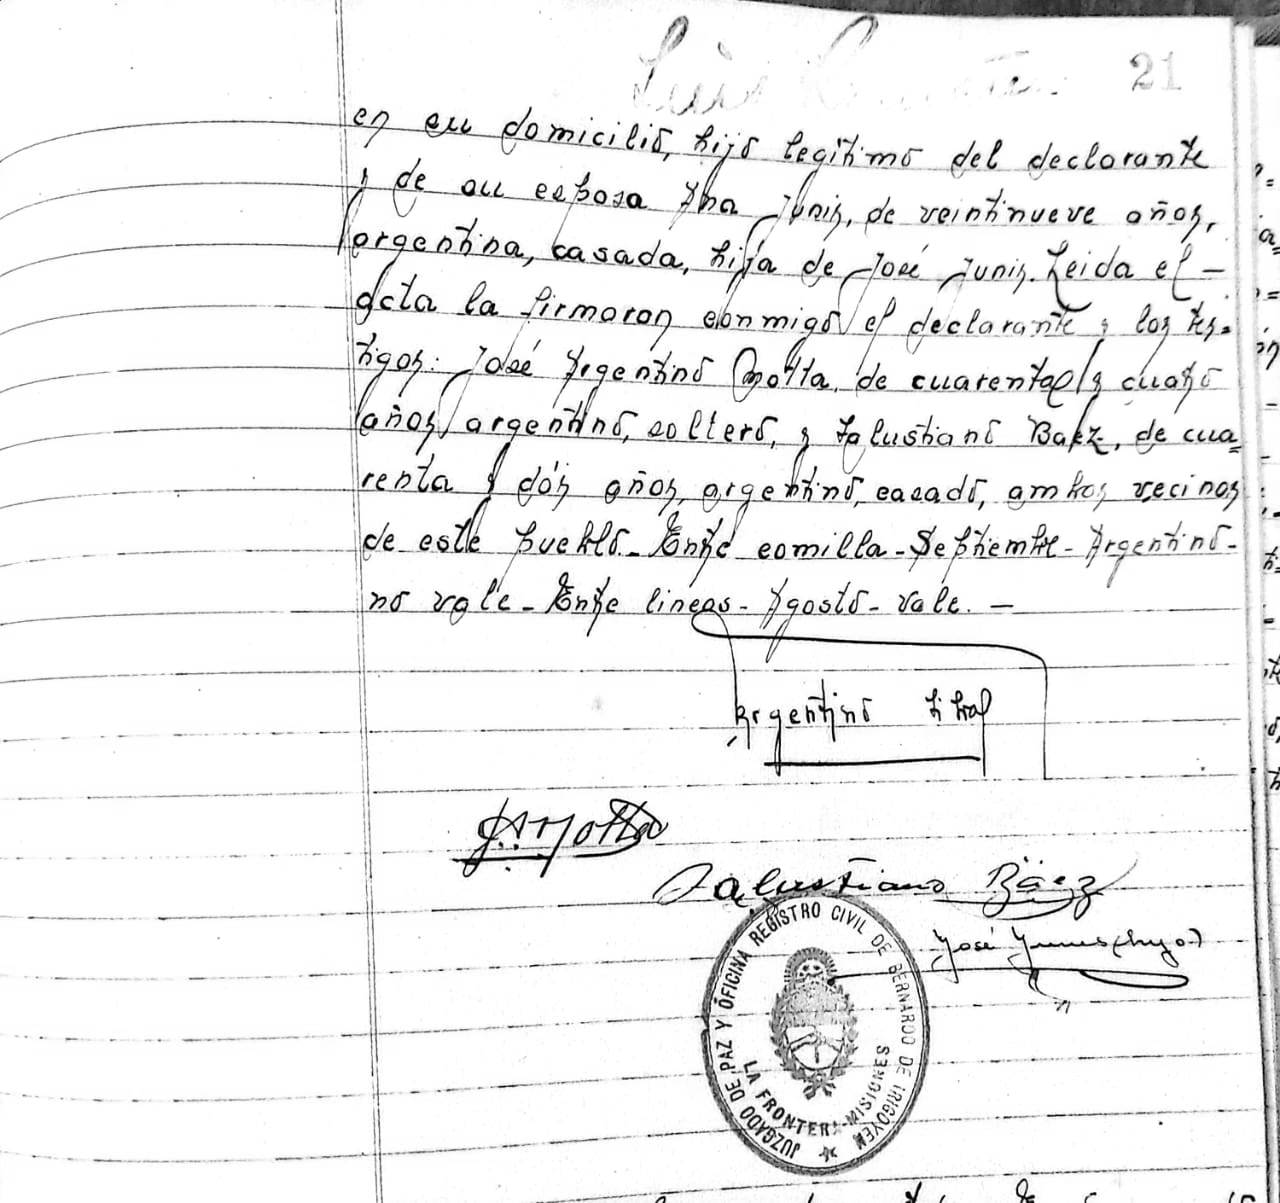 Luis
21
en su domicilio, hijo legitimo del declarante
y de su esposa Ana Junis, de veintinueve años,
argentina, casada, hija de José Junis. Leida el -
acta la firmaron conmigo el declarante y los tes=
tigos: José Argentino Motta, de cuarenta y cuatro
años, argentino, soltero, y Salustiano Baez, de cua=
renta y dós años, argentino, casado, ambos vecinos
de este pueblo - Entre comilla - Septiembre - Argentino -
no vale - Entre lineas - Agosto - Vale. -
Argentino
J.A. Motta
Salustiano Báez
José Yunes (hijo)
JUZGADO DE PAZ Y OFICINA REGISTRO CIVIL DE BERNARDO DE IRIGOYEN
LA FRONTERA - MISIONES